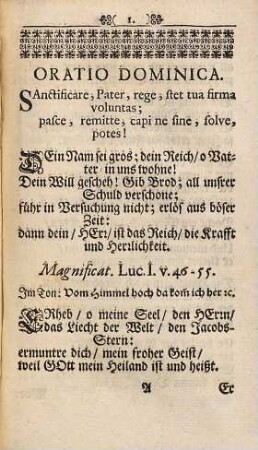 ( 1. )
ORATIO DOMINICA.
SAnctificare, Pater, rege, stet tua firma
voluntas;
pasce, remitte, capi ne sine, solve,
potes!
DEin Nam sei gros; dein Reich/ o Vat-
ter in uns wohne!
Dein Will gescheh! Gib Brod; all unsrer
Schuld verschone;
führ in Versuchung nicht; erlös aus böser
Zeit:
dann dein/ HErr/ ist das Reich/ die Krafft
und Herrlichkeit.
Magnificat. Luc. I. v. 46-55.
Im Ton: Vom Himmel hoch da kom ich her ꝛc.
ERheb/ o meine Seel/ den HErrn/
das Liecht der Welt/ den Jacobs-
Stern:
ermuntre dich/ mein froher Geist/
weil GOtt mein Heiland ist und heißt.
A Er